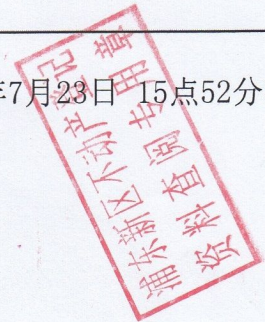 年7月23日 15点52分
浦东新区不动产登记
资料查阅专用章